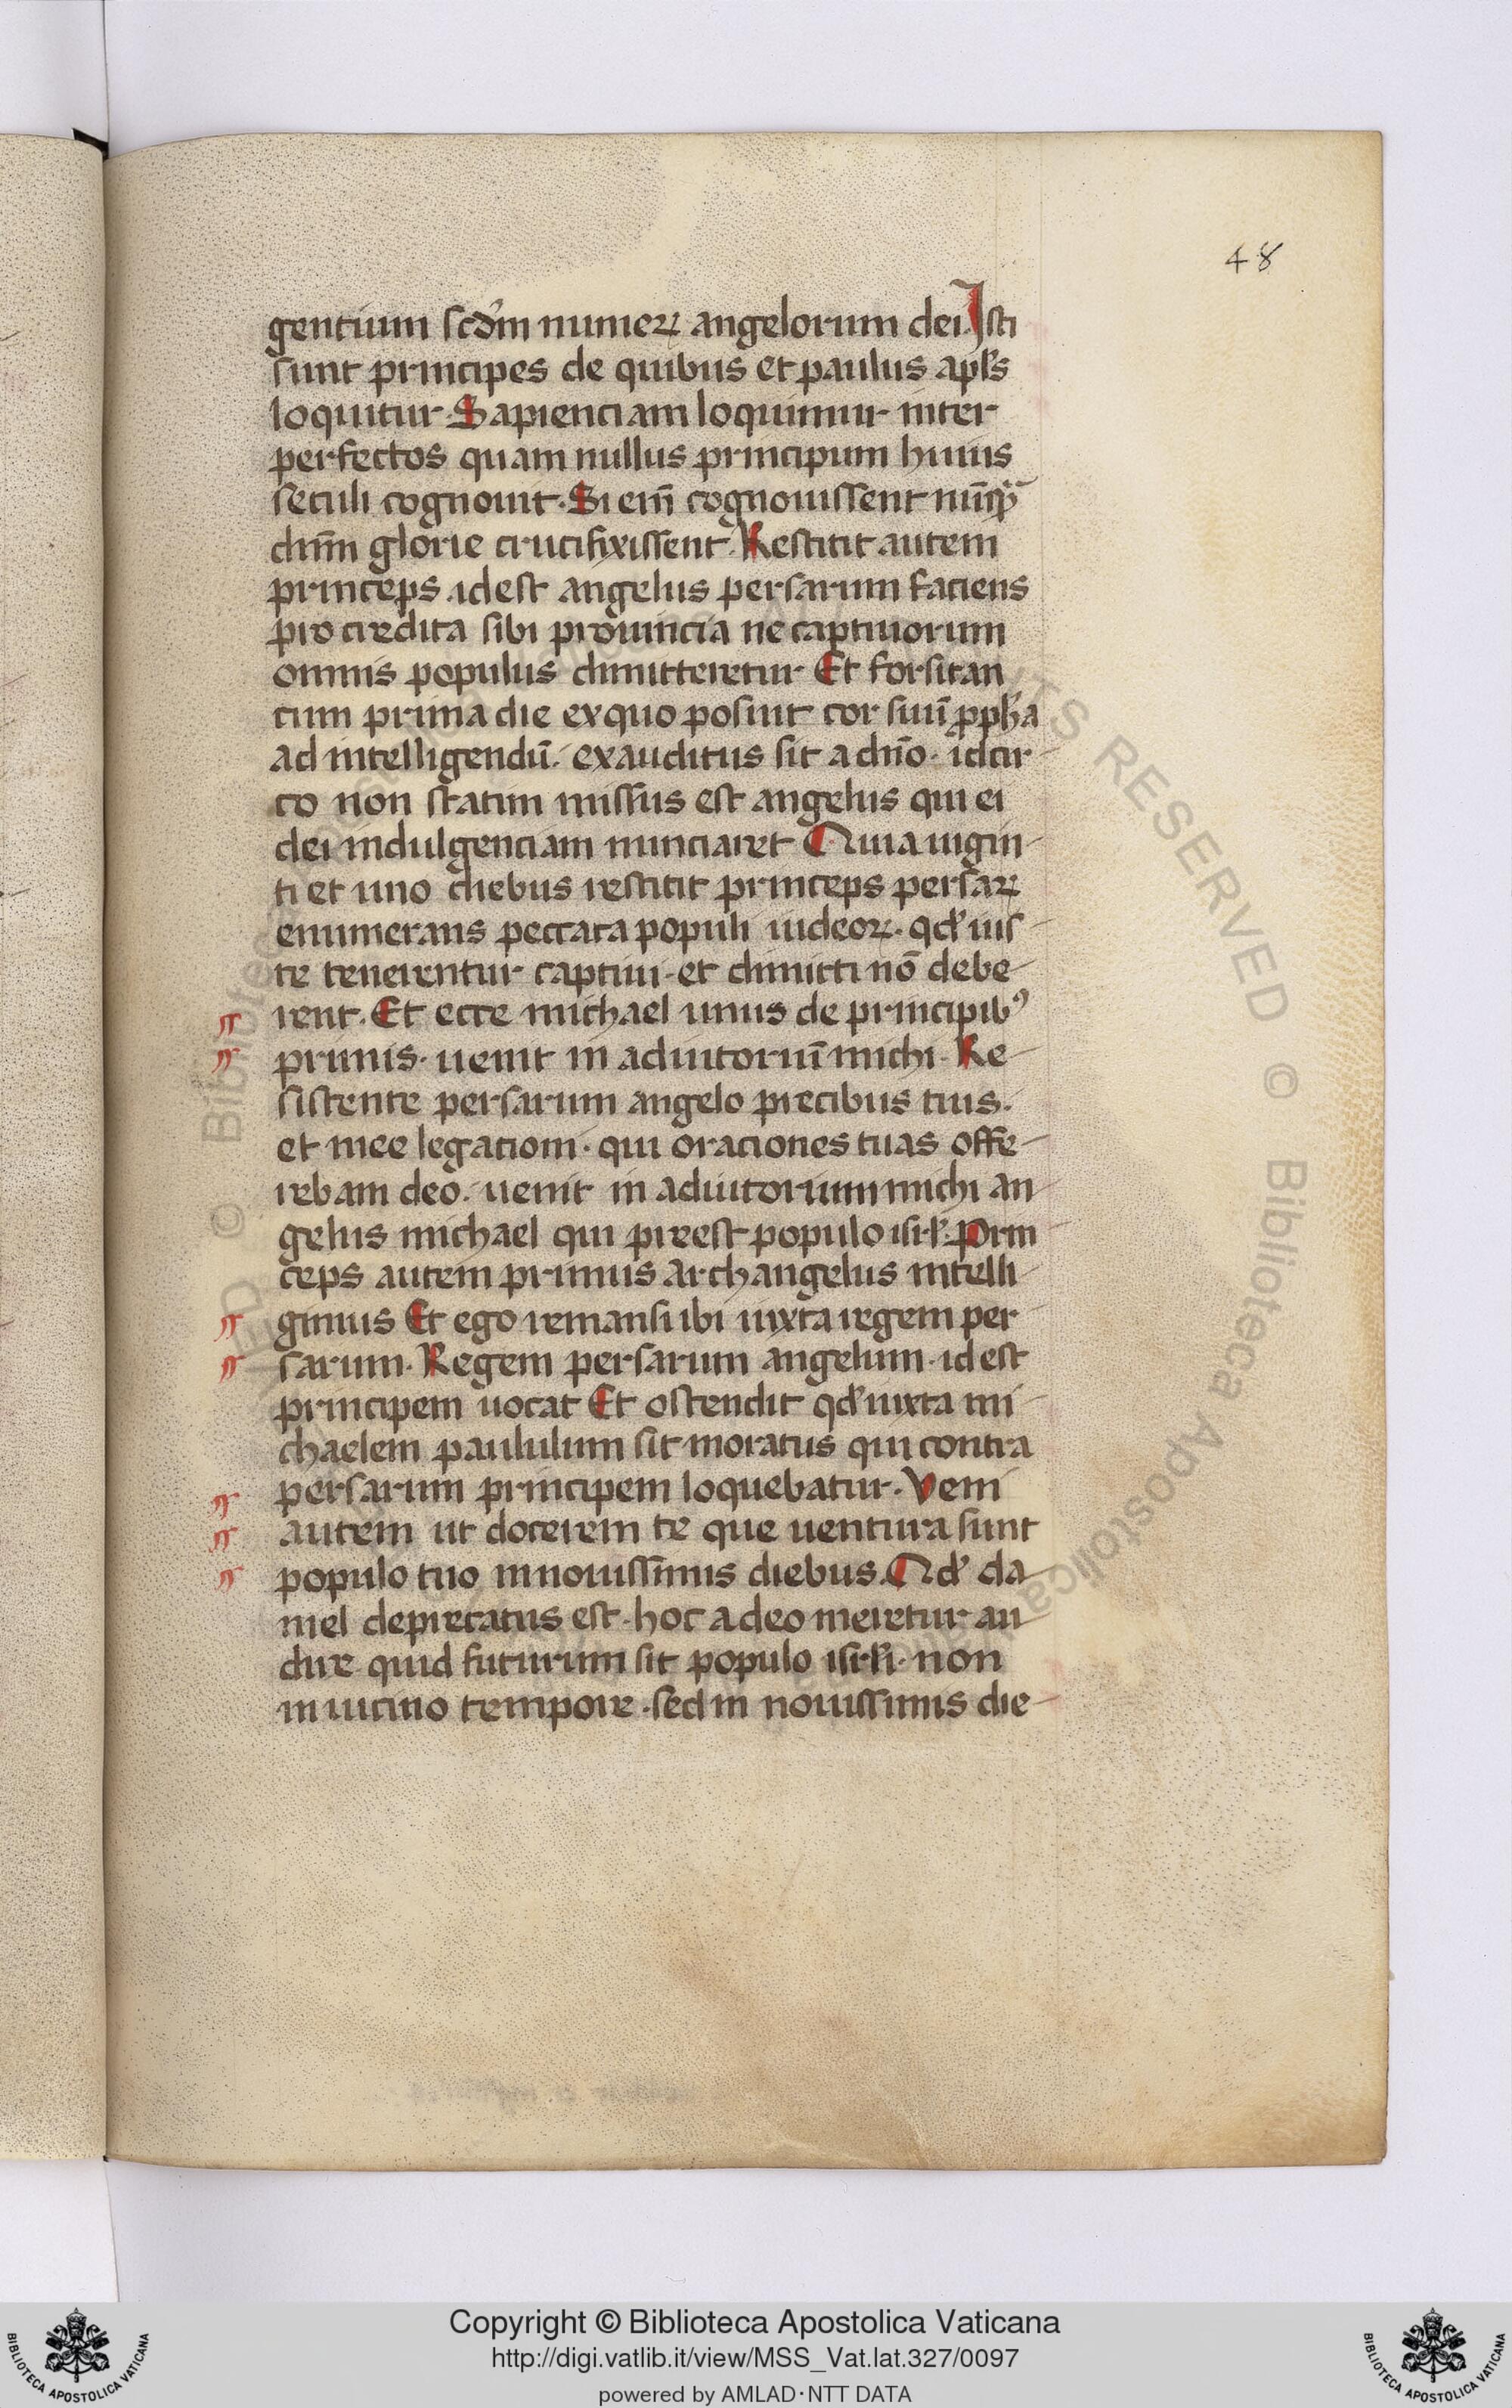 48
gentium scd̓m numeꝝ angelorum dei. Isti
sunt principes de quibus et paulus apl̓s
loquitur. Sapienciam loquimur inter
perfectos quam nullus principum huius
seculi cognouit. Si eni̅ cognouissent nu̅qᷓ
dn̅m glorie crucifixissent. Restitit autem
princeps .idest angelus persarum faciens
pro credita sibi prouincia ne captiuorum
omnis populus dimitteretur Et forsitan
cum prima die exquo posuit cor suu̅ ꝓph̓a
ad intelligendu̅. exauditus sit a dn̅o. idcir
co non statim missus est angelus qui ei
dei indulgenciam nunciaret Quia uigin
ti et uno diebus restitit princeps persaꝝ
enumerans peccata populi iudeoꝝ. qd̓ ius
te tenerentur captiui. et dimitti no̅ debe
rent. Et ecce michael unus de principibꝰ
primis. uenit in adiutoriu̅ michi. Re
sistente persarum angelo precibus tuis.
et mee legationi. qui oraciones tuas offe
rebam deo. uenit in adiutorium michi an
gelus michael qui preest populo isrl̓. Prin
ceps autem primus archangelus intelli
gimus Et ego remansi ibi iuxta regem per
sarum. Regem persarum angelum .id est
principem uocat Et ostendit qd̓ iuxta mi
chaelem paululum sit moratus qui contra
persarum principem loquebatur. Veni
autem ut docerem te que uentura sunt
populo tuo in nouissimis diebus. Qd̓ da
niel deprecatus est. hoc a deo meretur au
dire quid futurum sit populo isrl̓i. non
in uicino tempore. sed in nouissimis die
Copyright © Biblioteca Apostolica Vaticana
http://digi.vatlib.it/view/MSS_Vat.lat.327/0097
powered by AMLAD·NTT DATA
BIBLIOTECA APOSTOLICA VATICANA
BIBLIOTECA APOSTOLICA VATICANA